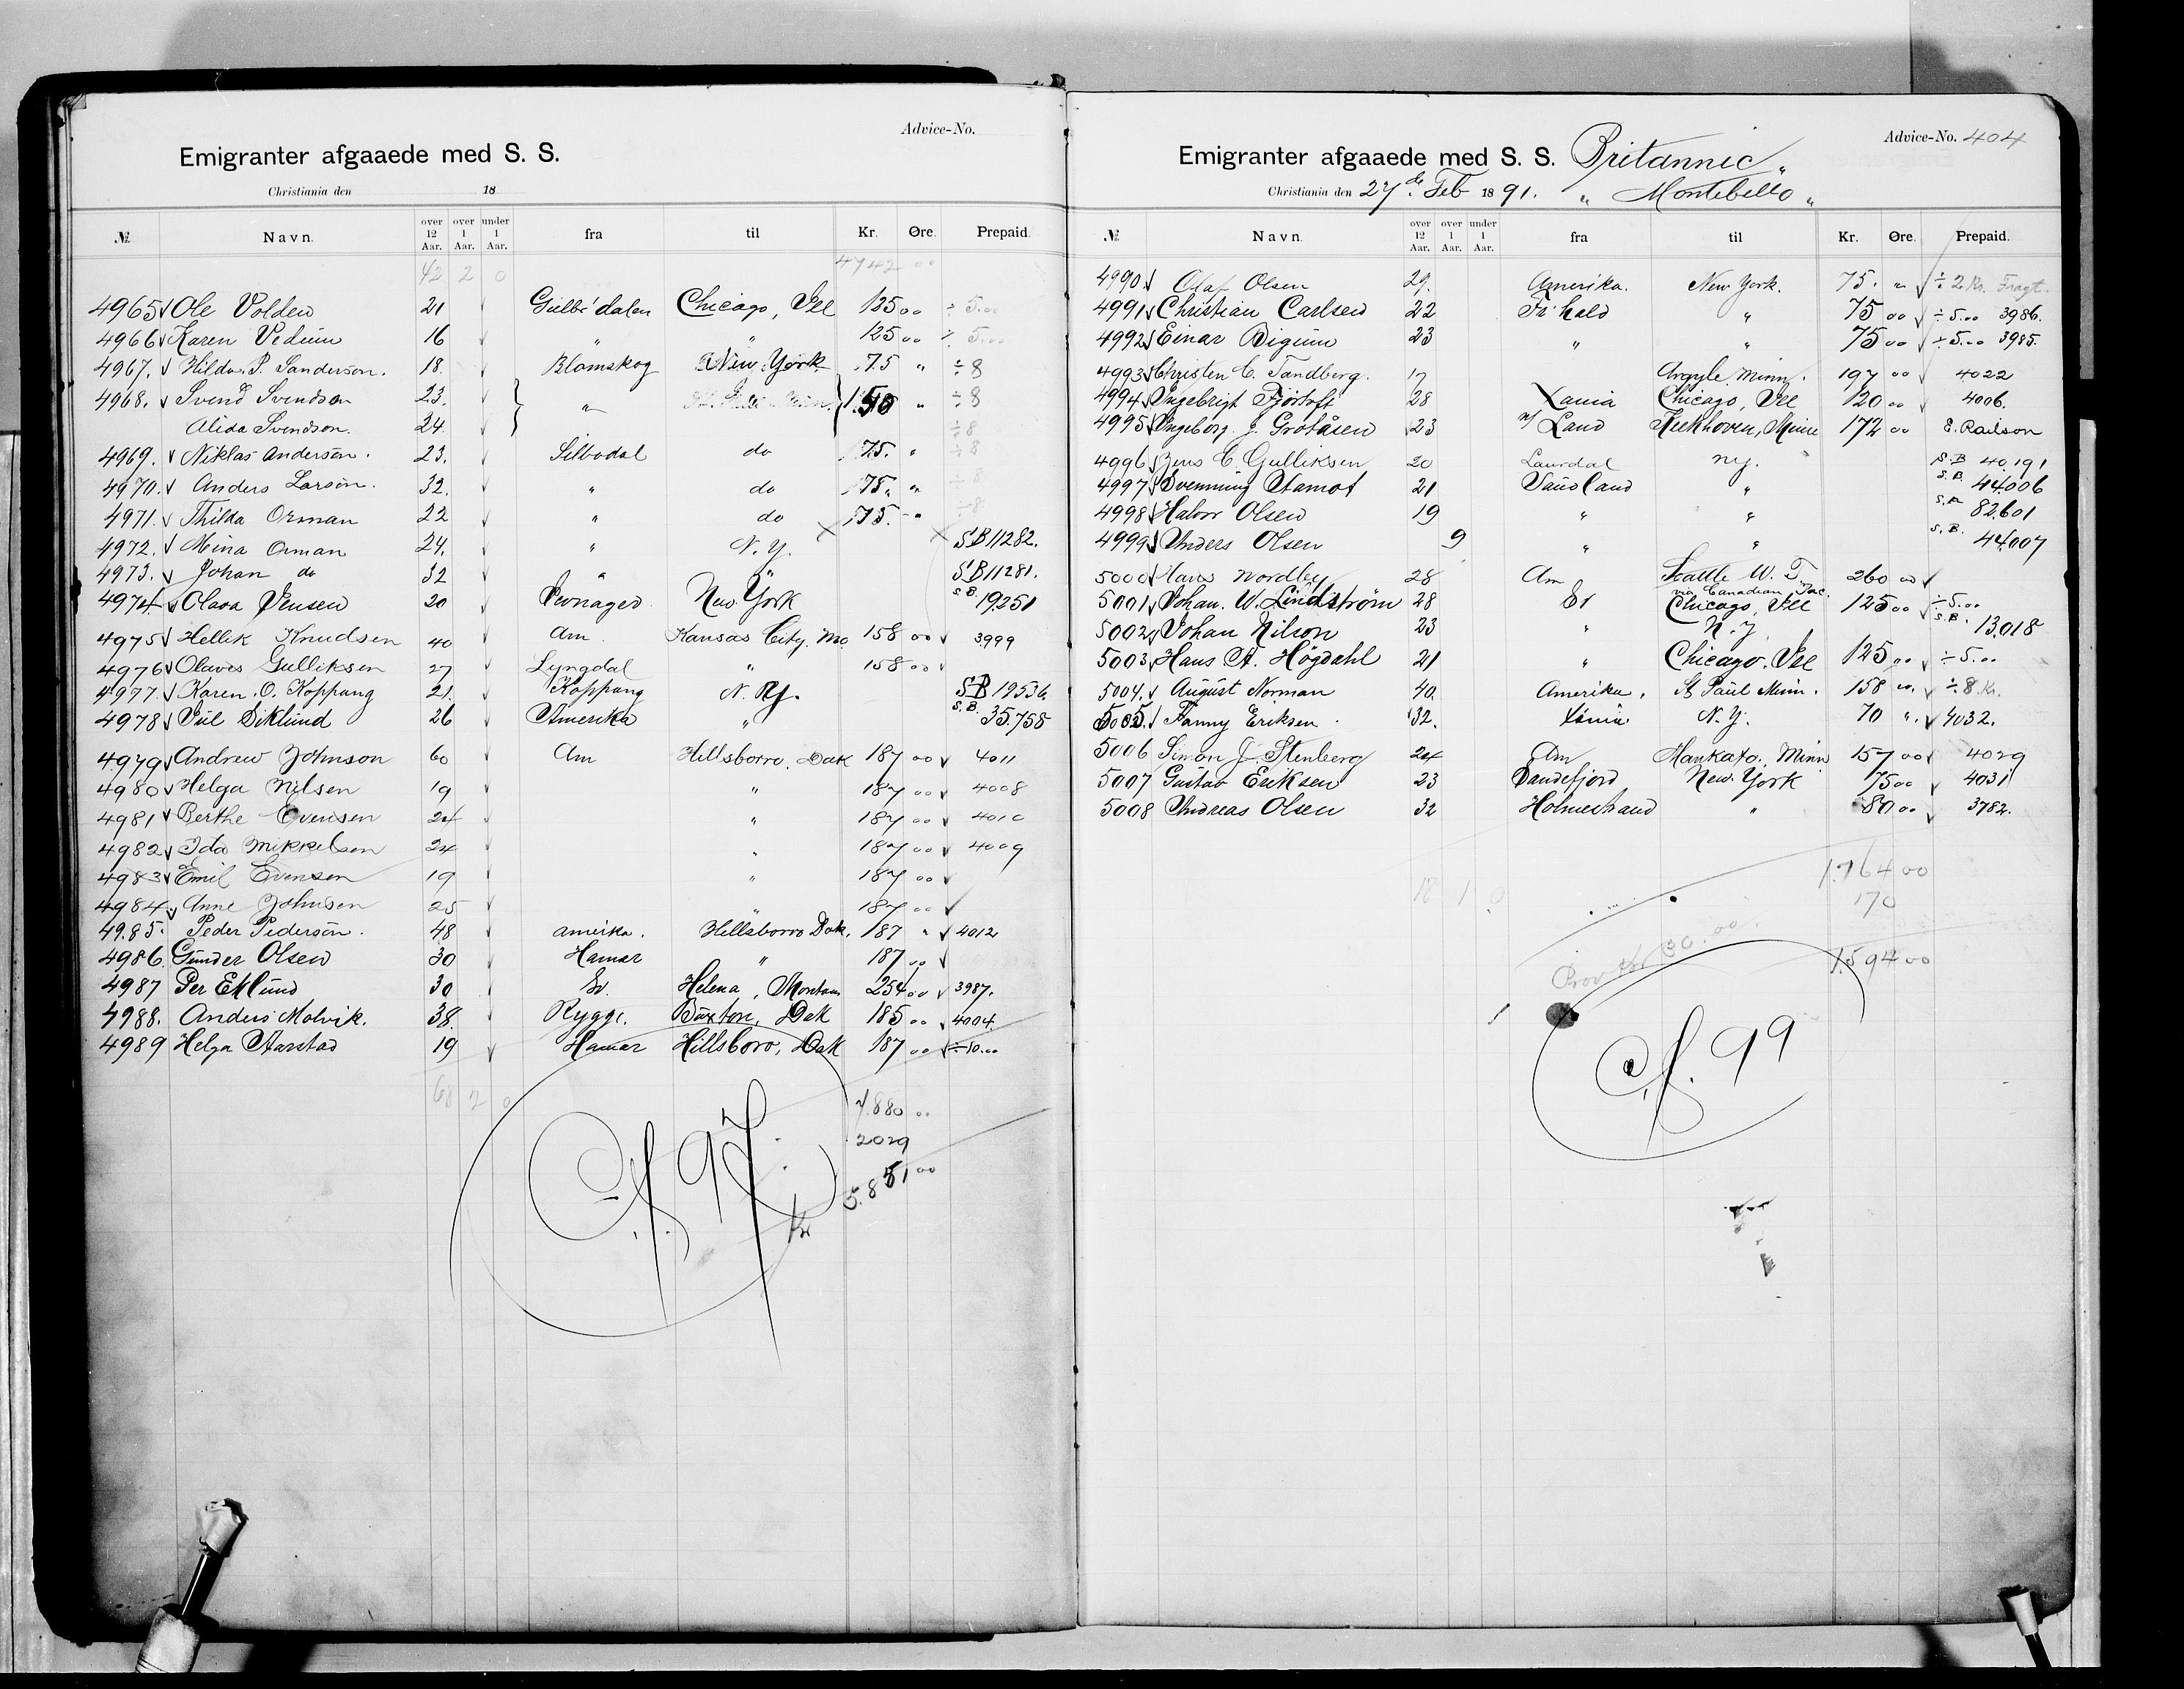 Advice-No.
Emigranter afgaaede med S. S.
Christiania den 18
№ Navn. over 12 Aar. over 1 Aar. under 1 Aar. fra til Kr. Øre. Prepaid.
42 2 0 4742 00
4965 Ole Volden 21 Gulbr'dalen Chicago, Ill 125 00 ÷ 5.00
4966 Karen Vedum 16 " " 125 00 ÷ 5.00
4967. Hilda. P. Sanderson. 18. Blomskog New York 75 " ÷ 8
4968. Svend Svendson 23. " 150 " ÷ 8
Alida Svendson. 24. ÷ 8
4969. Niklas Anderson. 23. Silbodal do 75. " ÷ 8
4970. Anders Larson. 32. " do 75. " ÷ 8
4971. Thilda Orman 22 " do 75. " ÷ 8
4972. Mina Orman 24. " N. Y. SB 11282.
4973. Johan do 32 " " SB 11281.
4974 Olava Jensen 20 New York S.B. 19251
4975 Hellik Knudsen 40 Am Kansas City. Mo 158 00 3999
4976 Olaves Gulliksen 27 Lyngdal " 158 00
4977. Karen. O. Koppang 21. Koppang N. Y. SB 19536.
4978 26 Amerika " S.B. 35.758
4979 Andrew Johnson 60 Am Hillsborro, Dak 187 00 4011
4980 Helga Nilsen 19 " 187 00 4008
4981 Berthe Evensen 24 " 187 00 4010
4982 Ida Mikkelsen 24 " 187 00 4009
4983 Emil Evensen 19 " 187 00
4984 Anne Johnsen 25 " 187 00
4985. Peder Pederson. 48 Amerika. Hillsborro Dak. 187 " 4012
4986. Gunder Olsen 30 Hamar " 187 00
4987 Per Eklund 30 Sv. Helena, Montana 254 00 3987.
4988. Anders Molvik. 38. Rygge. Buxton, Dak 185 00 4004.
4989 Helga Aarstad 19 Hamar Hillsboro, Dak 187 00 ÷ 10.00
68 2 0
7.880 00
2029
Kr 5.851 00
Cf. 97
Advice-No. 404
Emigranter afgaaede med S. S. Britannic "
Christiania den 27de Feb 1891. " Montebello "
№ Navn. over 12 Aar. over 1 Aar. under 1 Aar. fra til Kr. Øre. Prepaid.
4990 Olaf Olsen 29. Amerika. New York. 75. " ÷ 2 Kr. Fragt.
4991 Christian Carlsen 22 Fr'hald " 75 00 ÷ 5.00 3986.
4992 Einar Bigum 23 " " 75 00 ÷ 5.00 3985.
4993 Christen C. Tandberg. 17 Argyle Minn. 197 00 4022
4994 Ingebrigt Fjörtoft 28 Xania Chicago, Ill 120 00 4006.
4995 Ingeborg J. Grotåsen 23 n/ Land Minn 172 00 E. Railson
4996 Jens C. Gulliksen 20 Laurdal N.y. S.B 40,191
4997 Svenning Stamot 21 Sauoland " S.B. 44.006
4998 Halvor Olsen 19 " " S.B. 82.601
4999 Anders Olsen 9 " " S.B. 44.007
5000 Hans Nordby 28 Am Seattle W. T. 260 00
via Canadian Pac.
5001 Johan. W. Lindström 28 Sv Chicago, Ill 125 00 ÷ 5.00
5002 Johan Nilson 23 " N. Y. S.B. 13.018
5003 Hans A. Högdahl 21 " Chicago. Ill 125 00 ÷ 5.00
5004. August Norman 40. Amerika. St Paul Minn. 158 00. ÷ 8. Kr.
5005. Fanny Eriksen 32. Xania N. Y. 70 ". 4032.
5006 Simon J. Stenberg 24 Am Mankato, Minn 157 00 4029
5007 Gustav Eriksen 23 Sandefjord New York 75 00 4031
5008 Andreas Olsen 32 Holmestrand " 80 00 3782.
18 1 0
1.764 00
170
1.594 00
Prov 30.00.
Cf. 99